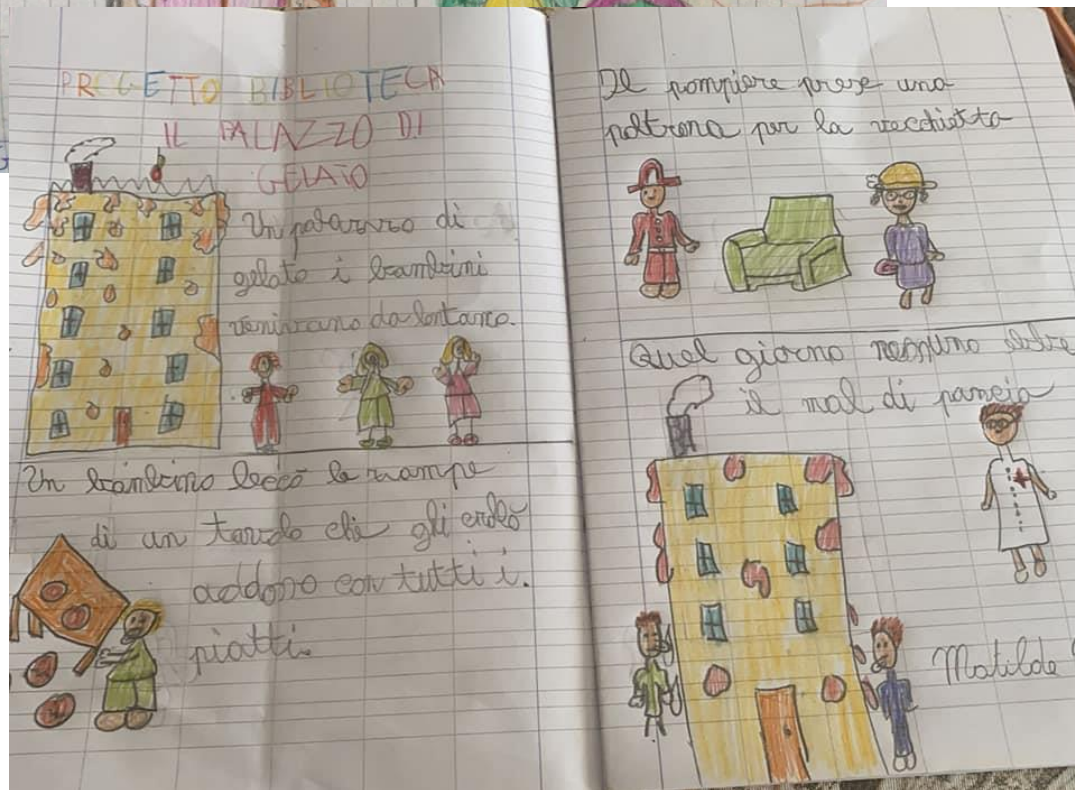 PROGETTO BIBLIOTECA
IL PALAZZO DI
GELATO
Un palazzo di
gelato i bambini
venivano da lontano.
Un bambino leccò le zampe
di un tavolo che gli crolò
addosso con tutti i.
piatti.
Il pompiere prese una
poltrona per la vecchietta
Quel giorno nessuno ebbe
il mal di pancia
Matilde